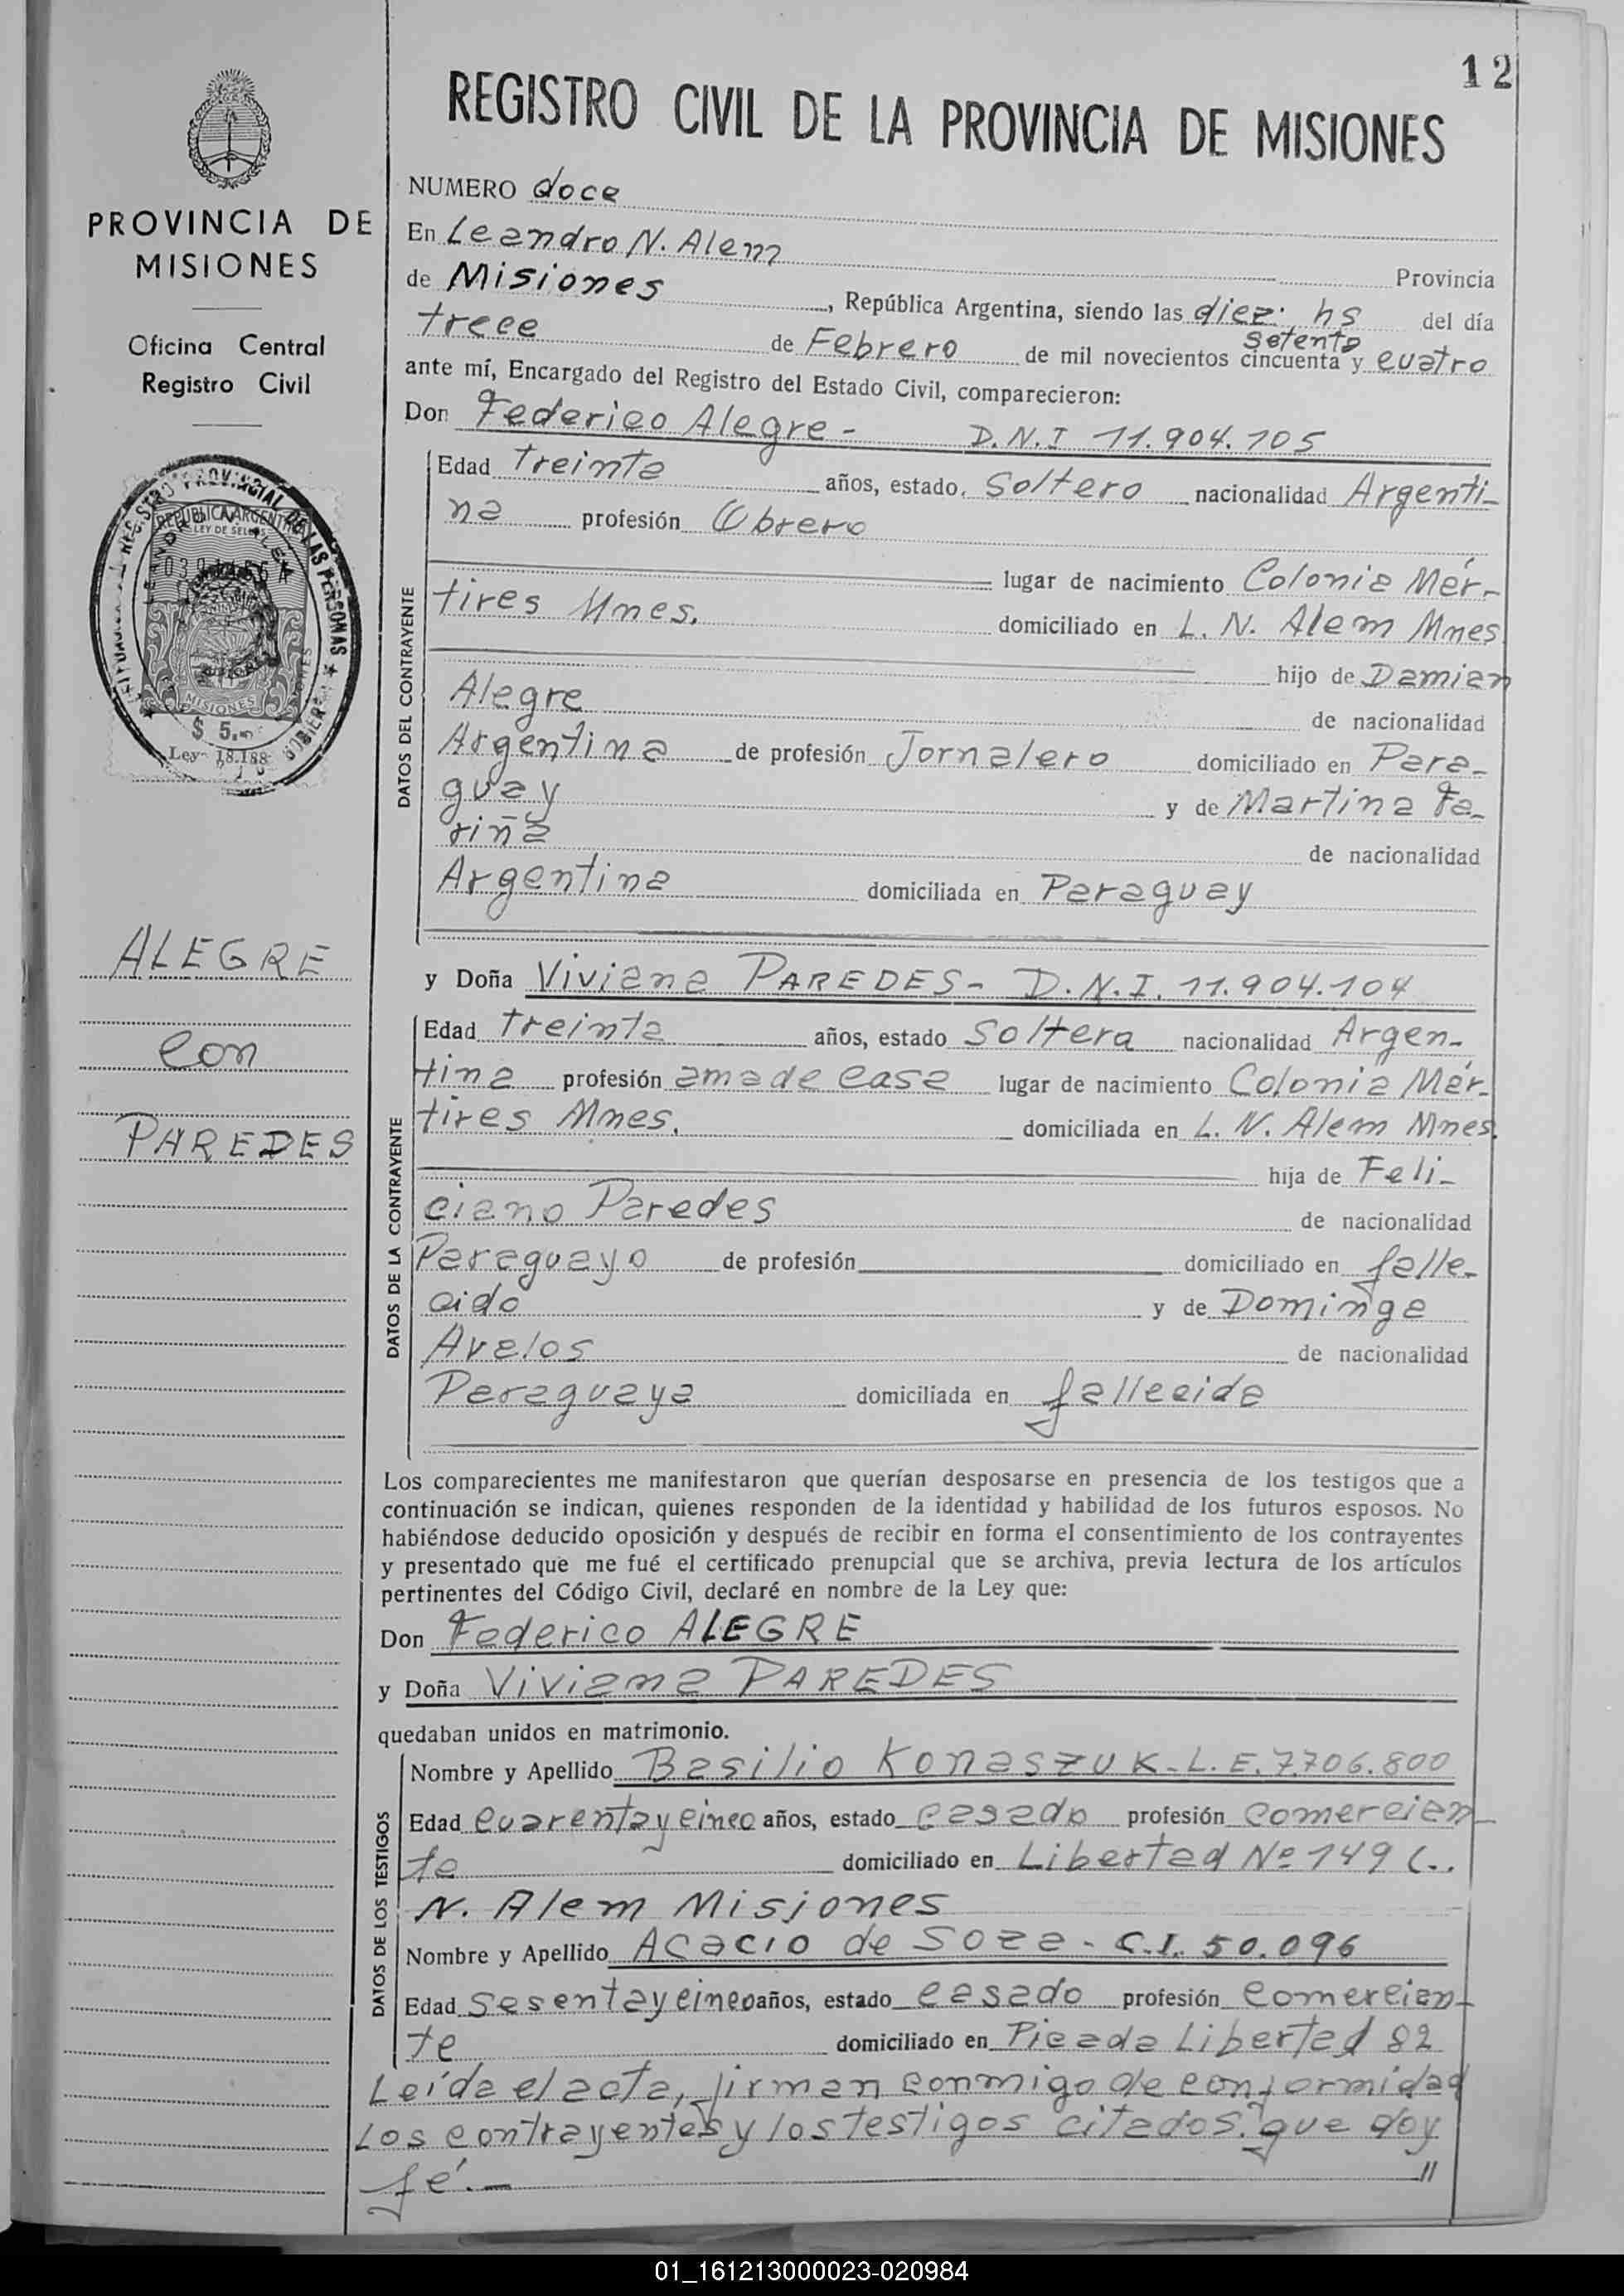 12
REGISTRO CIVIL DE LA PROVINCIA DE MISIONES
PROVINCIA DE
MISIONES
Oficina Central
Registro Civil
REPUBLICA ARGENTINA
LEY DE SELLOS
MISIONES
$ 5.-
Ley 18.188
ALEGRE
con
PAREDES
NUMERO doce
En Leandro N. Alem Provincia
de Misiones, República Argentina, siendo las diez hs del día
trece de Febrero de mil novecientos cincuenta setenta y cuatro
ante mí, Encargado del Registro del Estado Civil, comparecieron:
Don Federico Alegre - D.N.I 11.904.105
DATOS DEL CONTRAYENTE
Edad treinta años, estado, Soltero nacionalidad Argenti-
na profesión Obrero
lugar de nacimiento Colonia Már-
tires Mnes. domiciliado en L. N. Alem Mnes
hijo de Damian
Alegre de nacionalidad
Argentina de profesión Jornalero domiciliado en Para-
guay y de Martina Fa-
riña de nacionalidad
Argentina domiciliada en Paraguay
y Doña Viviana PAREDES- D.N.I. 11.904.104
DATOS DE LA CONTRAYENTE
Edad treinta años, estado Soltera nacionalidad Argen-
tina profesión ama de casa lugar de nacimiento Colonia Már-
tires Mnes. domiciliada en L. N. Alem Mnes.
hija de Feli-
ciano Paredes de nacionalidad
Paraguayo de profesión domiciliado en falle-
cido y de Dominga
Avalos de nacionalidad
Paraguaya domiciliada en fallecida
Los comparecientes me manifestaron que querían desposarse en presencia de los testigos que a
continuación se indican, quienes responden de la identidad y habilidad de los futuros esposos. No
habiéndose deducido oposición y después de recibir en forma el consentimiento de los contrayentes
y presentado que me fué el certificado prenupcial que se archiva, previa lectura de los artículos
pertinentes del Código Civil, declaré en nombre de la Ley que:
Don Federico ALEGRE
y Doña Viviana PAREDES
quedaban unidos en matrimonio.
DATOS DE LOS TESTIGOS
Nombre y Apellido Basilio Konaszuk-L.E. 7.706.800
Edad cuarentaycinco años, estado casado profesión comercian-
te domiciliado en Libertad Nº 149 L.
N. Alem Misiones
Nombre y Apellido Acacio de Soza - C.I. 50.096
Edad sesentaycinco años, estado casado profesión comercian-
te domiciliado en Picada Libertad 82
Leída el acta, firman conmigo de conformidad
los contrayentes y los testigos citados. que doy
fé.- //
01_161213000023-020984